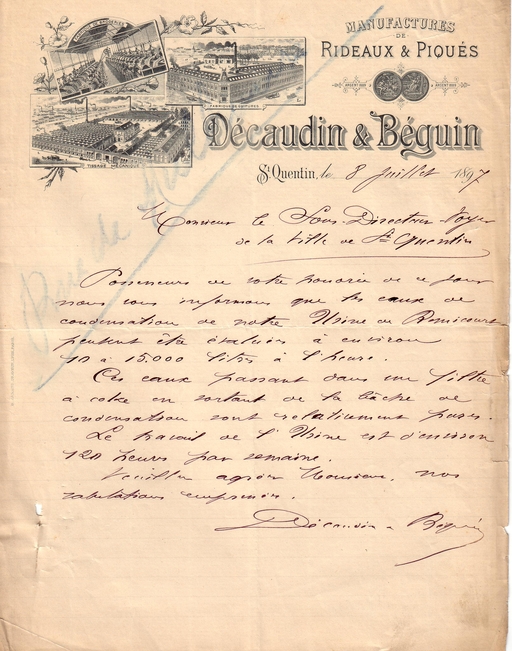 MANUFACTURES
DE
RIDEAUX & PIQUÉS
ARGENT 1889
ARGENT 1889
FABRIQUE DE GUIPURES
TISSAGE MÉCANIQUE
Décaudin & Béguin
St Quentin, le 8 Juillet 1897
Monsieur le Sous-Directeur Voyer
de la Ville de St Quentin
Possesseurs de votre honorée de ce jour
nous vous informons que les eaux de
condensation de notre Usine de Remicourt
peuvent être évaluées à environ
10 à 15.000 litres à l'heure.
Ces eaux passant dans un filtre
à coke en sortant de la bâche de
condensation sont relativement pures.
Le travail de l'Usine est d'environ
120 heures par semaine.
Veuillez agréer Monsieur, nos
salutations empressées.
Décaudin & Béguin
Rue de